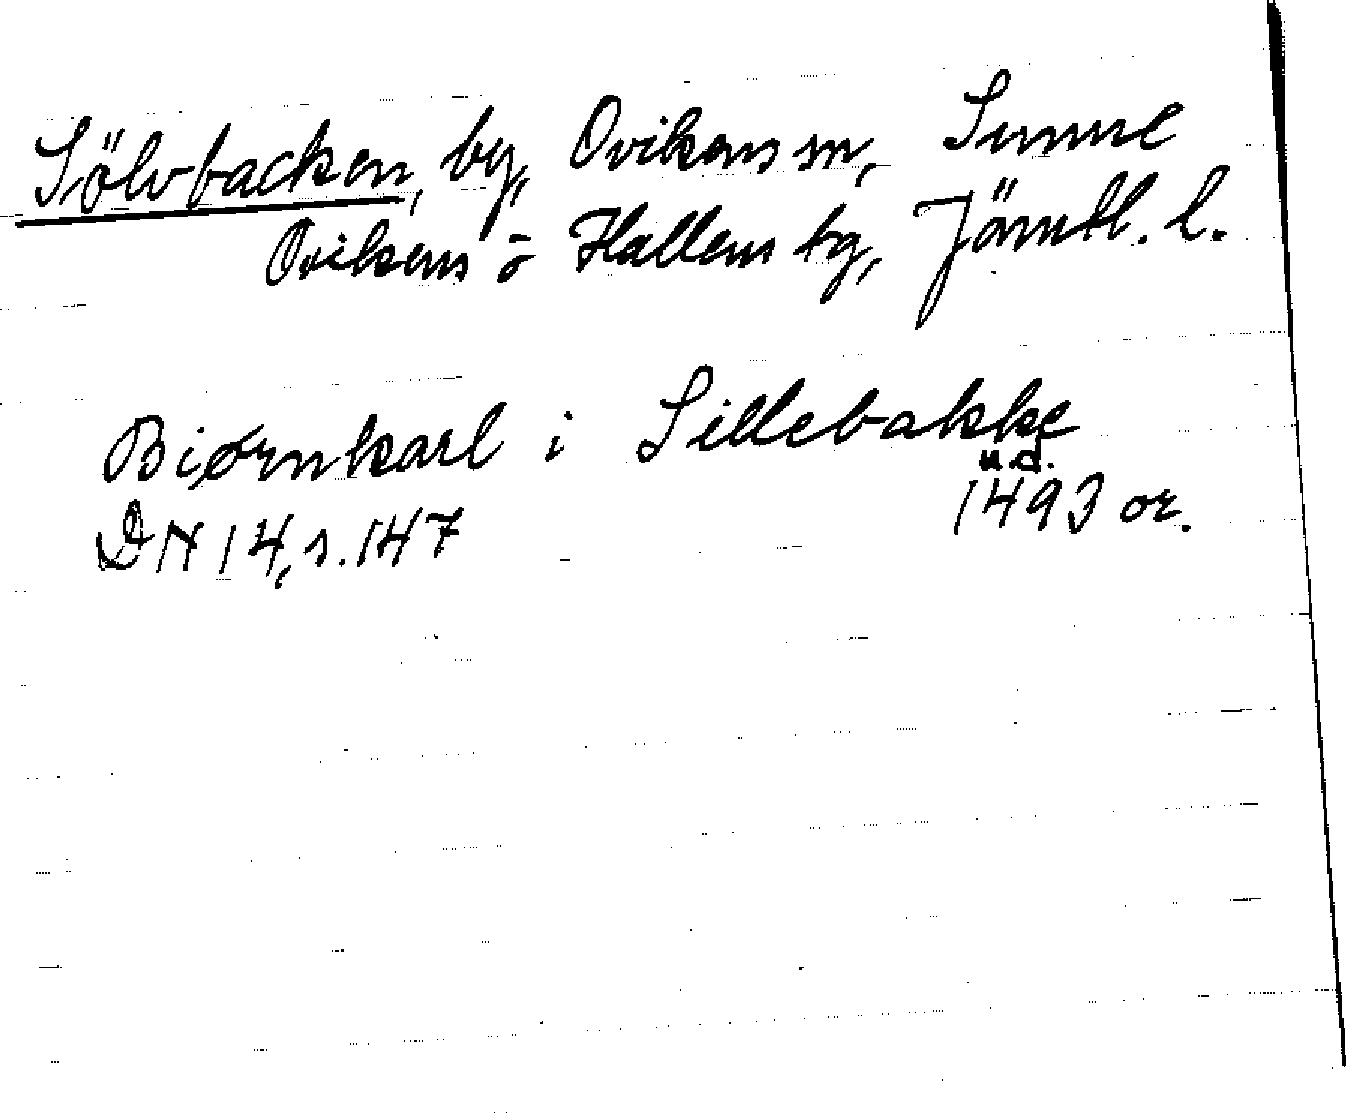 Sölvbacken, by, Ovikens sn, Sunne
Ovikens o Hallens tg, Jämtl. l.
Biørnkarl i Sillebakke
u.d.
DN 14, s. 147 1493 or.